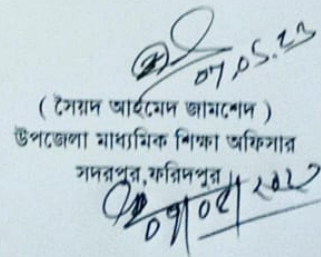 07.05.23
( সৈয়দ আহমেদ জামশেদ )
উপজেলা মাধ্যমিক শিক্ষা অফিসার
সদরপুর,ফরিদপুর